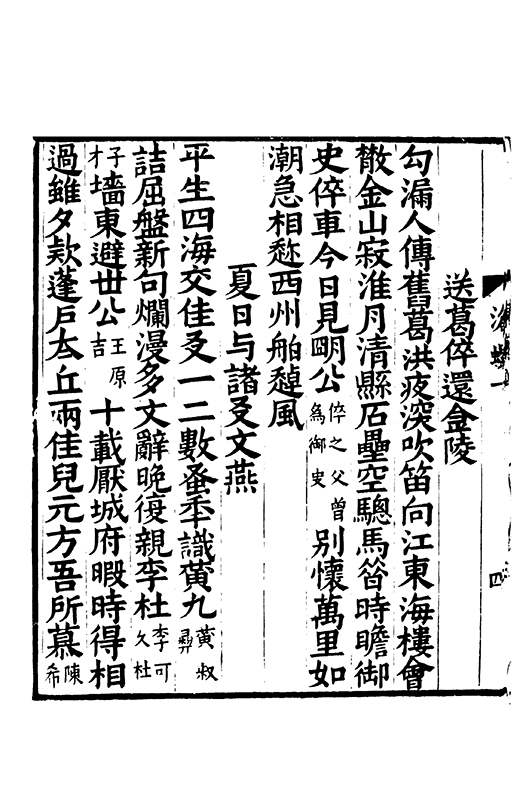 送葛倅還金陵
勾漏人傳舊葛洪夜深吹笛向江東海樓會
散金山寂淮月清縣石壘空驄馬昝時瞻御
史倅車今日見明公倅之父曾為御史別懷萬里如
潮急相愁西州舶趠風
夏日与諸友文燕
平生四海交佳友一二數蚤年識黄九黄叔彛
詰屈盤新句爛漫多文辭晚復親李杜李可久杜
子才墻東避世公王原吉十載厭城府暇時得相
過雖夕款蓬戶太丘兩佳兒元方吾所慕陳希
四